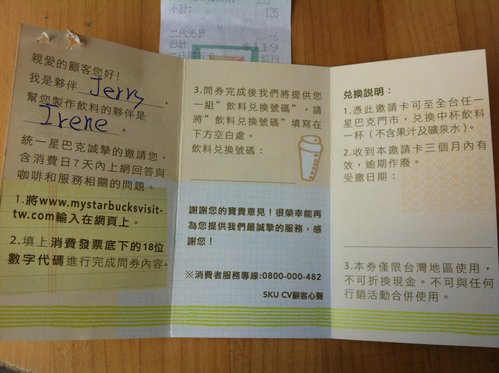 小計:
125
二代95折
-6
合計
119
$119
親愛的顧客您好!
我是夥伴 Jerry ,
幫您製作飲料的夥伴是
Irene 。
統一星巴克誠摯的邀請您,
含消費日7天內上網回答與
咖啡和服務相關的問題。
1.將www.mystarbucksvisit-
tw.com輸入在網頁上。
2.填上消費發票底下的18位
數字代碼進行完成問券內容。
3.問券完成後我們將提供您
一組”飲料兌換號碼”,請
將”飲料兌換號碼”填寫在
下方空白處。
飲料兌換號碼:
謝謝您的寶貴意見!很榮幸能再
為您提供我們最誠摯的服務,感
謝您!
※消費者服務專線:0800-000-482
SKU CV顧客心聲
兌換說明:
1.憑此邀請卡可至全台任一
星巴克門市,兌換中杯飲料
一杯(不含果汁及礦泉水)。
2.收到本邀請卡三個月內有
效,逾期作廢。
受邀日期:
3.本券僅限台灣地區使用,
不可折換現金。不可與任何
行銷活動合併使用。